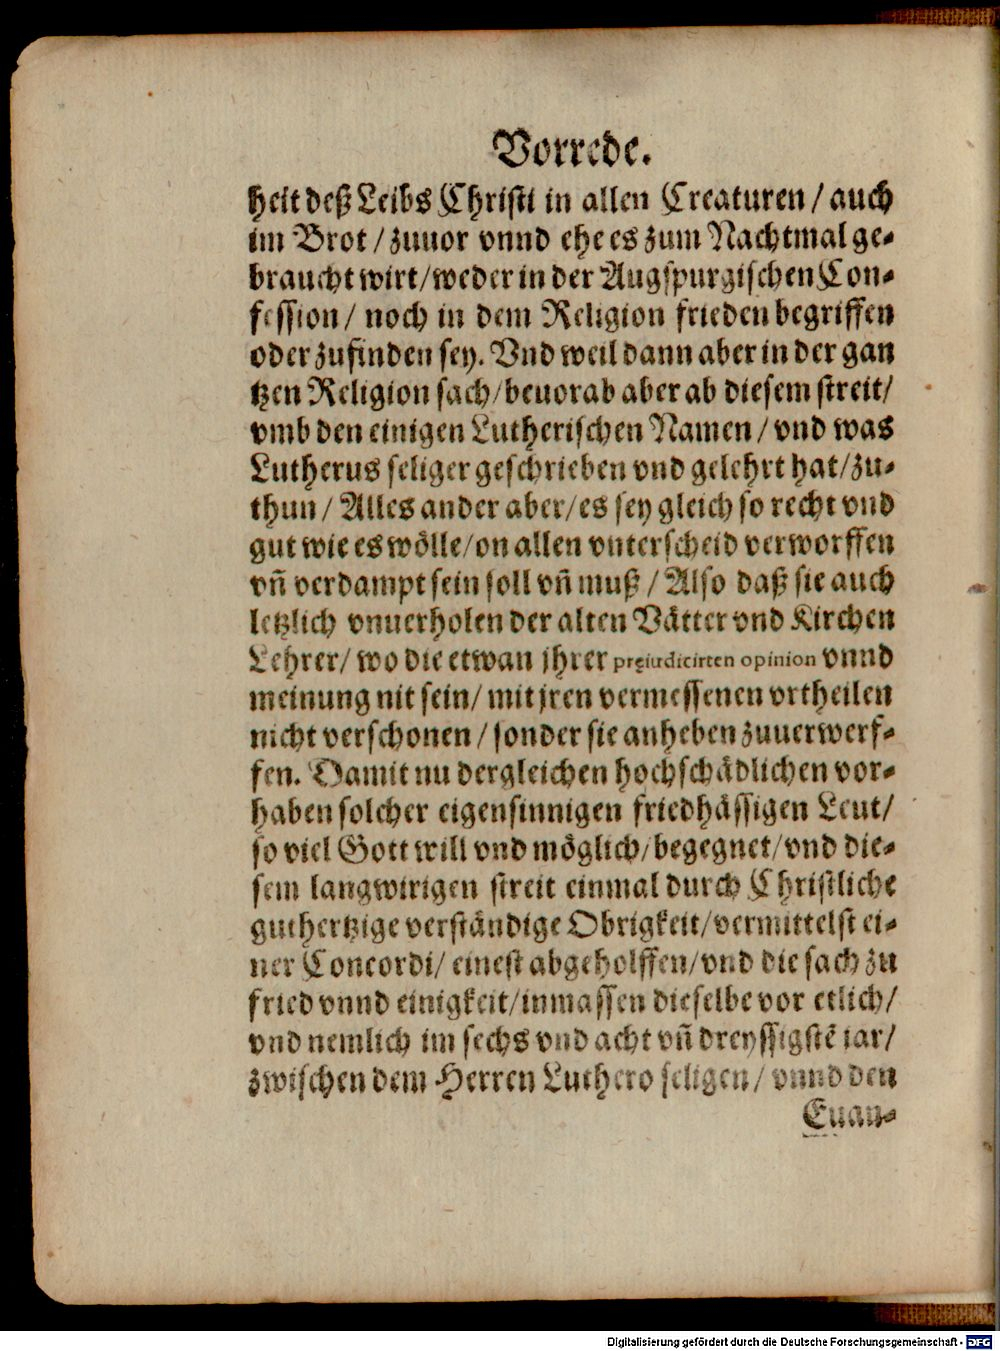 Vorrede.
heit deß Leibs Christi in allen Creaturen / auch
im Brot / zuuor vnnd ehe es zum Nachtmal ge-
braucht wirt / weder in der Augspurgischen Con-
fession / noch in dem Religion frieden begriffen
oder zufinden sey. Vnd weil dann aber in der gan
tzen Religion sach / beuorab aber ab diesem streit /
vmb den einigen Lutherischen Namen / vnd was
Lutherus seliger geschrieben vnd gelehrt hat / zu-
thun / Alles ander aber / es sey gleich so recht vnd
gut wie es wölle / on allen vnterscheid verworffen
vñ verdampt sein soll vñ muß / Also daß sie auch
letzlich vnuerholen der alten Vätter vnd Kirchen
Lehrer / wo die etwan jhrer pręiudicirten opinion vnnd
meinung nit sein / mit jren vermessenen vrtheilen
nicht verschonen / sonder sie anheben zuuerwerf-
fen. Damit nu dergleichen hochschädlichen vor-
haben solcher eigensinnigen friedhässigen Leut /
so viel Gott will vnd möglich / begegnet / vnd die-
sem langwirigen streit einmal durch Christliche
guthertzige verständige Obrigkeit / vermittelst ei-
ner Concordi / einest abgeholffen / vnd die sach zu
fried vnnd einigkeit / inmassen dieselbe vor etlich /
vnd nemlich im sechs vnd acht vñ dreyssigstẽ jar /
zwischen dem Herren Luthero seligen / vnnd den
Euan-
Digitalisierung gefördert durch die Deutsche Forschungsgemeinschaft - DFG